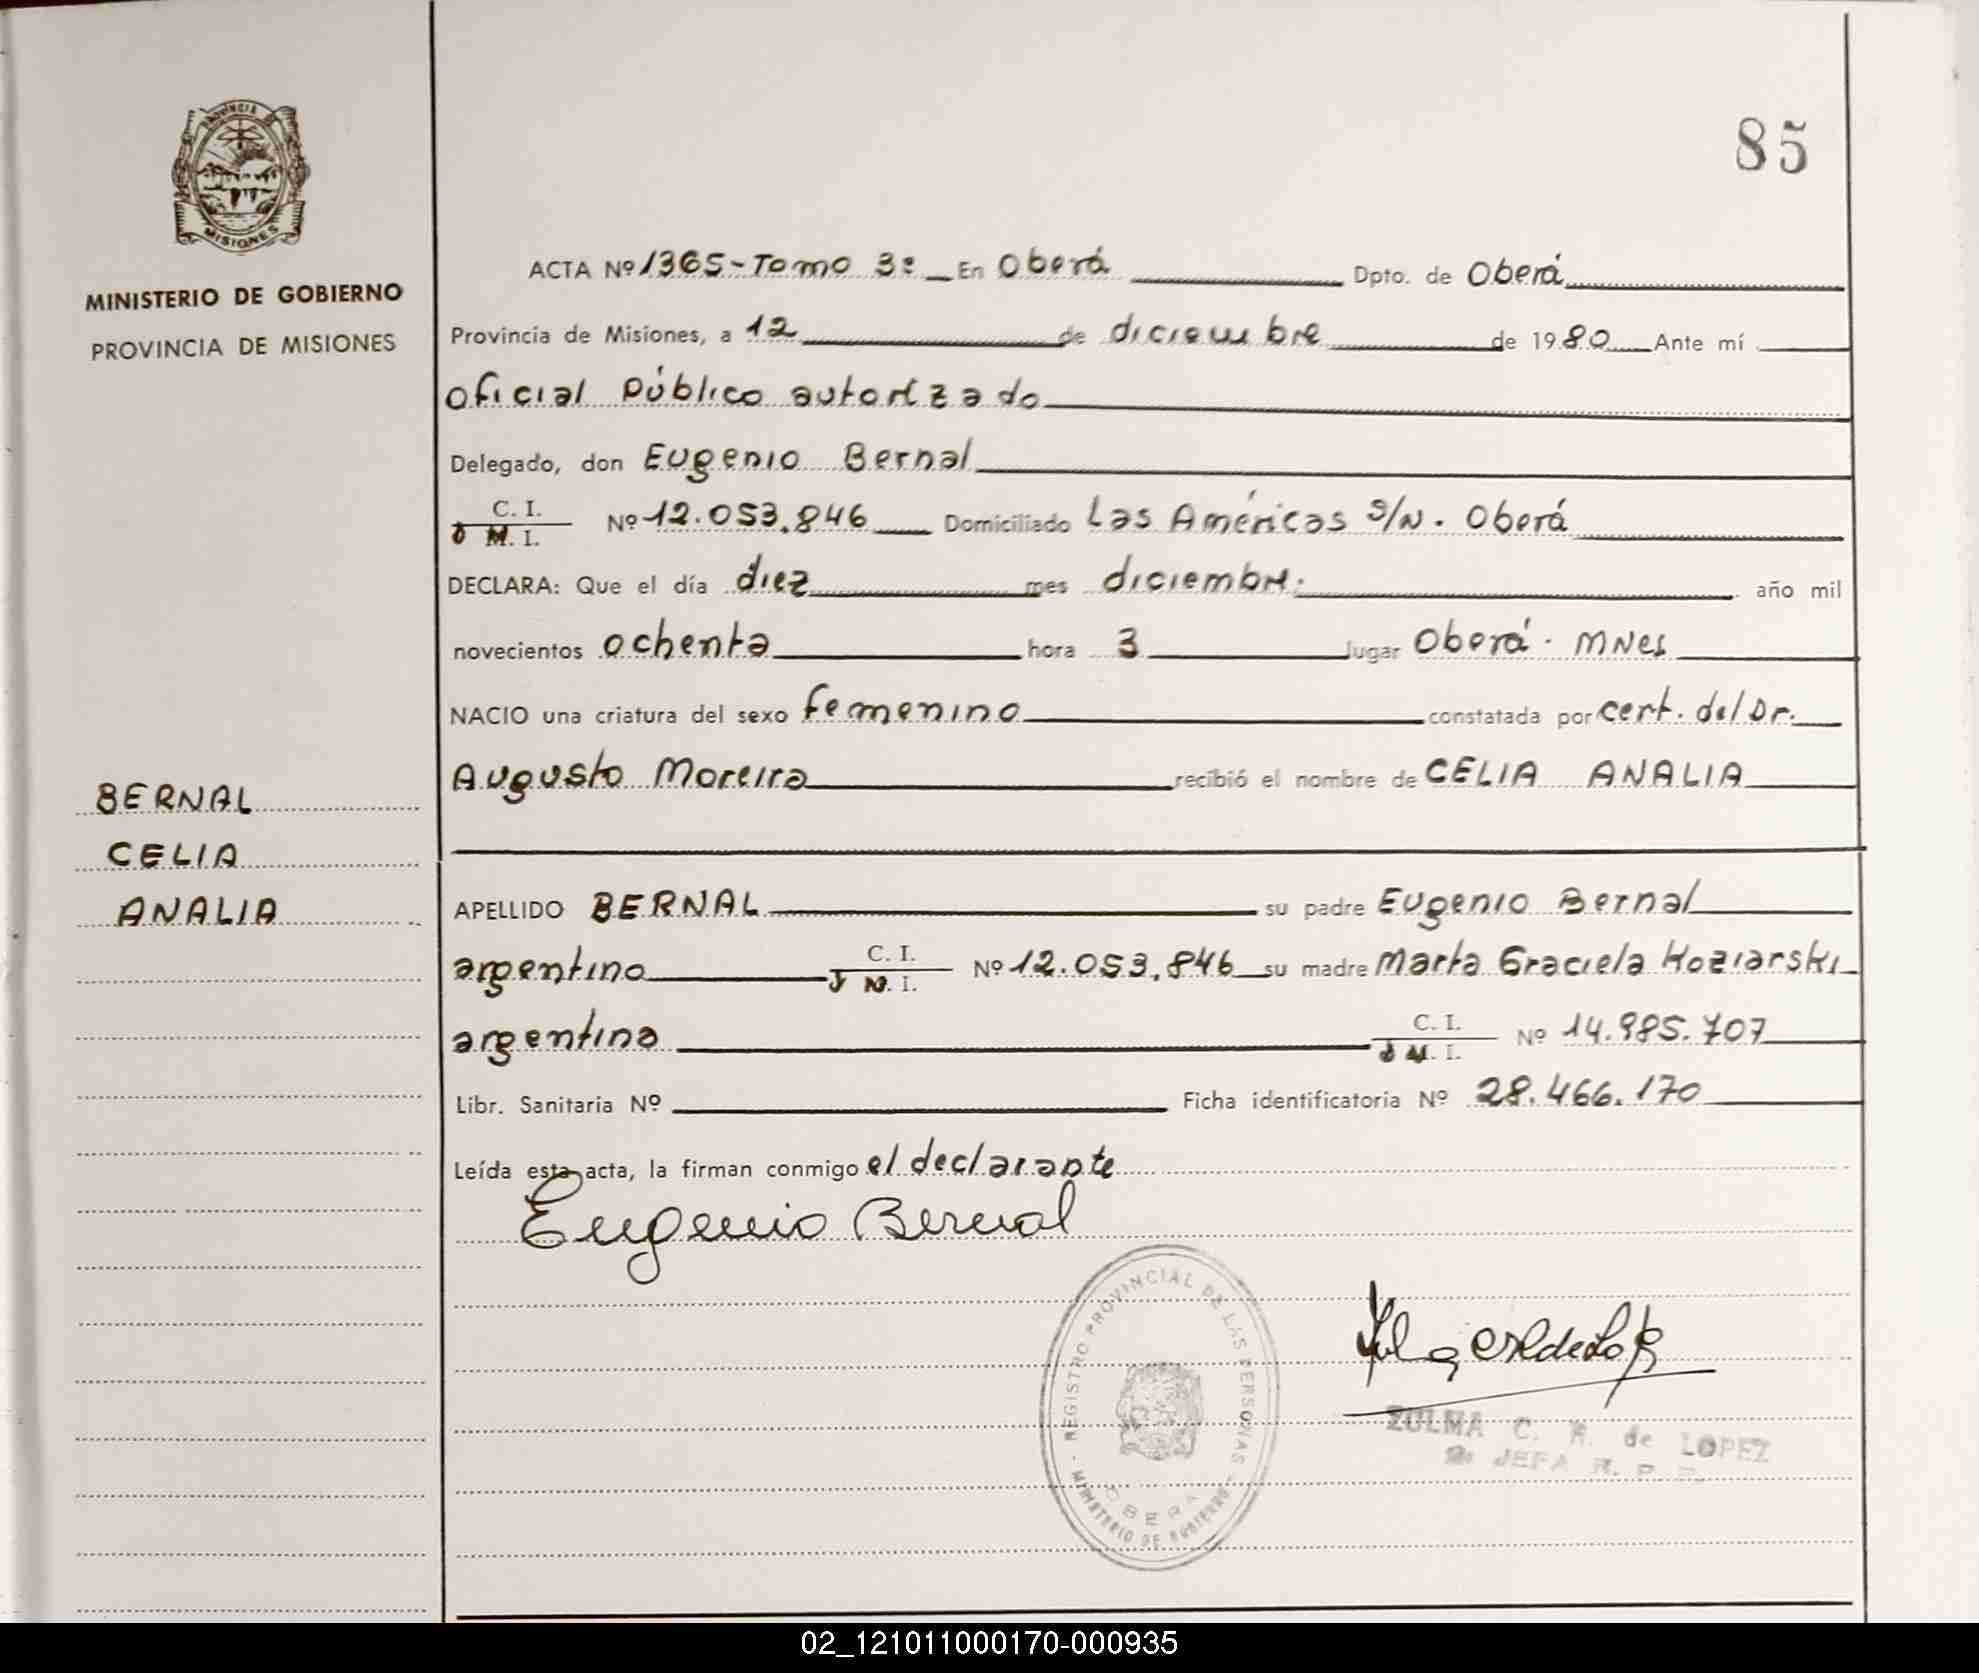 PROVINCIA DE
MISIONES
MINISTERIO DE GOBIERNO
PROVINCIA DE MISIONES
BERNAL
CELIA
ANALIA
85
ACTA Nº 1365-Tomo 3º En Oberá Dpto. de Oberá
Provincia de Misiones, a 12 de diciembre de 1980 Ante mí
oficial Público autorizado
Delegado, don Eugenio Bernal
C. I.
D M. I. Nº 12.053.846 Domiciliado Las Américas S/N. Oberá
DECLARA: Que el día diez mes diciembre. año mil
novecientos ochenta hora 3 lugar Oberá. MNes
NACIO una criatura del sexo femenino constatada por cert. del Dr.
Augusto Moreira recibió el nombre de CELIA ANALIA
APELLIDO BERNAL su padre Eugenio Bernal
argentino C. I. Nº 12.053.846 su madre Marta Graciela Koziarski
argentina C. I. Nº 14.985.707
Libr. Sanitaria Nº Ficha identificatoria Nº 28.466.170
Leída esta acta, la firman conmigo el declarante
Eugenio Bernal
REGISTRO PROVINCIAL DE LAS PERSONAS
OBERA
MINISTERIO DE GOBIERNO
ZULMA C. R. de LOPEZ
JEFA R. P. P.
02_121011000170-000935